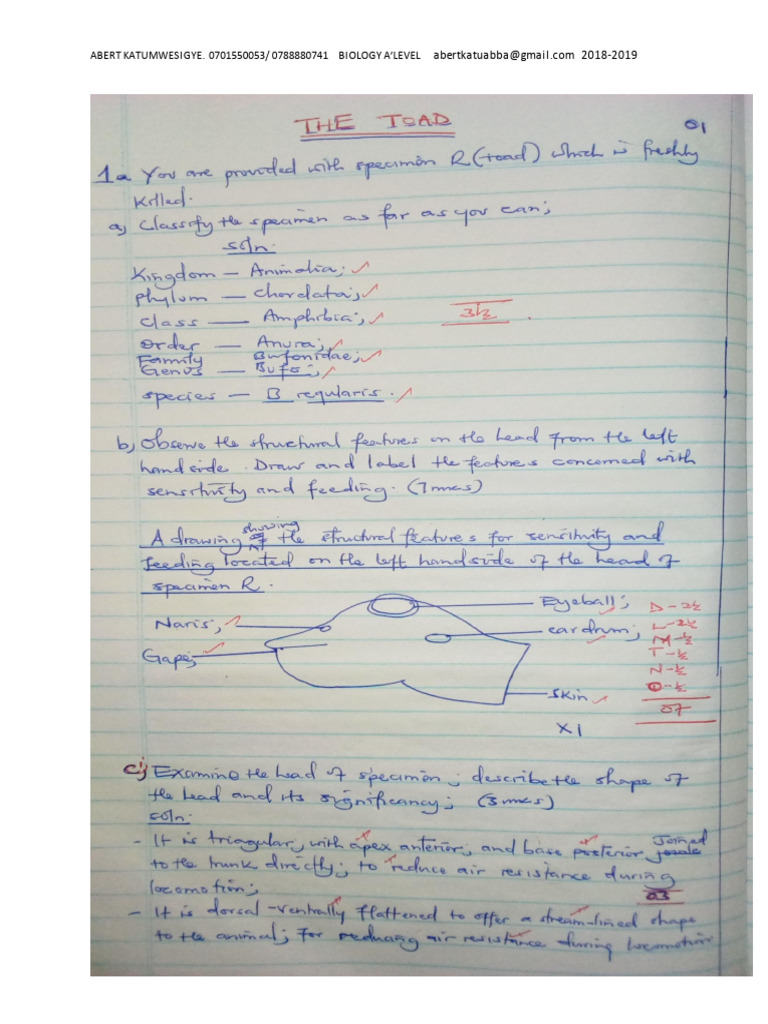 ABERT KATUMWESIGYE. 0701550053/ 0788880741 BIOLOGY A'LEVEL abertkatuabba@gmail.com 2018-2019
THE TOAD
01
1a You are provided with specimen R (toad) which is freshly
killed.
a) Classify the specimen as far as you can;
Soln.
Kingdom — Animalia;
phylum — Chordata;
Class — Amphibia;
3½
Order — Anura;
Family Bufonidae;
Genus — Bufo;
species — B regularis.
b) Observe the structural features on the head from the left
hand side. Draw and label the features concerned with
sensitivity and feeding. (7mks)
A drawing showing the structural features for sensitivity and
feeding located on the left handside of the head of
specimen R.
Eyeball;
Naris;
ear drum;
Gape;
Skin
X1
D - 2½
L - 2½
M - ½
T - ½
N - ½
O - ½
07
c) Examine the head of specimen; describe the shape of
the head and its significancy; (3mks)
Soln.
- It is triagular, with apex anterior; and base posterior joined
to the trunk directly; to reduce air resistance during
locomotion;
03
- It is dorsal-ventrally flattened to offer a streamlined shape
to the animal; for reducing air resistance during locomotion